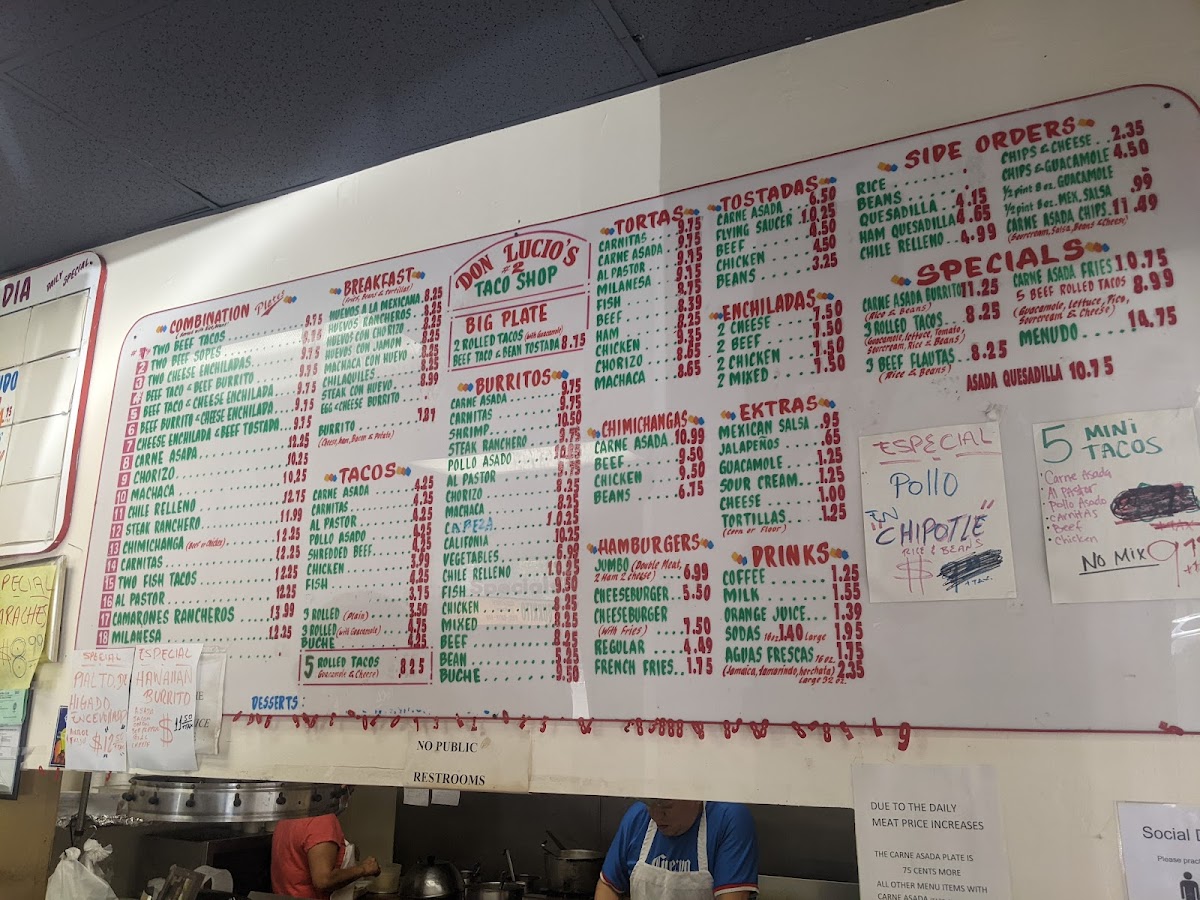 DIA
DAILY SPECIAL
COMBINATION Plates
1 TWO BEEF TACOS 9.75
2 TWO BEEF SOPES 9.75
3 TWO CHEESE ENCHILADAS 9.75
4 TACO & BEEF BURRITO 9.75
5 BEEF TACO & CHEESE ENCHILADA 9.75
6 BEEF BURRITO & CHEESE ENCHILADA 9.75
7 CHEESE ENCHILADA & BEEF TOSTADA 9.75
8 CARNE ASADA 12.25
9 CHORIZO 10.25
10 MACHACA 10.25
11 CHILE RELLENO
12 STEAK RANCHERO 12.75
13 CHIMICHANGA (Beef or Chicken) 11.99
14 CARNITAS 12.25
15 TWO FISH TACOS
16 AL PASTOR 12.25
17 CAMARONES RANCHEROS 13.99
18 MILANESA 12.25
BREAKFAST
(Rice, Beans & Tortillas)
HUEVOS A LA MEXICANA 8.25
HUEVOS RANCHEROS 8.25
HUEVOS CON CHORIZO 8.25
HUEVOS CON JAMON 8.25
MACHACA CON HUEVO 8.25
CHILAQUILES 8.25
STEAK CON HUEVO 8.99
EGG & CHEESE BURRITO
BURRITO 7.29
(Cheese, Ham, Bacon & Potato)
TACOS
CARNE ASADA 4.25
CARNITAS 4.25
AL PASTOR 4.25
POLLO ASADO 4.25
SHREDDED BEEF 4.25
CHICKEN 3.99
FISH 3.75
3 ROLLED (Plain) 3.50
3 ROLLED (With Guacamole) 4.75
BUCHE 4.25
5 ROLLED TACOS 8.25
Guacamole & Cheese)
DON LUCIO'S
#2
TACO SHOP
BIG PLATE
2 ROLLED TACOS (With Guacamole)
BEEF TACO & BEAN TOSTADA 8.75
BURRITOS
CARNE ASADA 9.75
CARNITAS 9.75
SHRIMP 10.50
STEAK RANCHERO 9.75
POLLO ASADO
AL PASTOR
CHORIZO 8.25
MACHACA 8.25
CALIFONIA 10.25
VEGETABLES 6.99
CHILE RELLENO 10.25
FISH
CHICKEN 8.25
MIXED 8.25
BEEF 8.25
BEAN
BUCHE 9.50
TORTAS
CARNITAS 9.75
CARNE ASADA 9.75
AL PASTOR 9.75
MILANESA 9.75
FISH 9.75
BEEF 8.39
HAM 8.25
CHICKEN 9.25
CHORIZO 8.65
MACHACA 8.65
CHIMICHANGAS
CARNE ASADA 10.99
BEEF 9.50
CHICKEN 9.50
BEANS 6.75
HAMBURGERS
JUMBO (Double Meat,
2 Ham 2 Cheese) 6.99
CHEESEBURGER 5.50
CHEESEBURGER
(With Fries) 7.50
REGULAR 4.49
FRENCH FRIES 1.75
TOSTADAS
CARNE ASADA 6.50
FLYING SAUCER 10.25
BEEF 4.50
CHICKEN 4.50
BEANS 3.25
ENCHILADAS
2 CHEESE 7.50
2 BEEF 7.50
2 CHICKEN 7.50
2 MIXED 7.50
EXTRAS
MEXICAN SALSA .95
JALAPEÑOS .65
GUACAMOLE 1.25
SOUR CREAM 1.25
CHEESE 1.00
TORTILLAS 1.25
(Corn or Flour)
DRINKS
COFFEE 1.25
MILK 1.55
ORANGE JUICE 1.39
SODAS 16oz. 1.40 Large 1.95
AGUAS FRESCAS 16 oz. 1.75
(Jamaica, Tamarindo, Horchata) 2.35
Large 32 oz.
SIDE ORDERS
RICE
BEANS
QUESADILLA 4.15
HAM QUESADILLA 4.65
CHILE RELLENO 4.99
CHIPS & CHEESE 2.35
CHIPS & GUACAMOLE 4.50
½ pint 8 oz. GUACAMOLE
½ pint 8 oz. MEX. SALSA .99
CARNE ASADA CHIPS 11.49
(Sourcream, Salsa, Beans & Cheese)
SPECIALS
CARNE ASADA BURRITO 11.25
(Rice & Beans)
3 ROLLED TACOS 8.25
(Guacamole, Lettuce, Tomato,
Sourcream, Rice & Beans)
3 BEEF FLAUTAS 8.25
(Rice & Beans)
CARNE ASADA FRIES 10.75
5 BEEF ROLLED TACOS 8.99
(Guacamole, Lettuce, Rice,
Sourcream & Cheese)
MENUDO 14.75
ASADA QUESADILLA 10.75
ESPECIAL
POLLO
"EN
CHIPOTLE"
RICE & BEANS
$
5 MINI
TACOS
Carne Asada
Al Pastor
Pollo Asado
Carnitas
Beef
Chicken
NO MIX
DESSERTS :
SPECIAL
$8.99
SPECIAL
HIGADO
ENCEBOLLADO
ESPECIAL
HAWAIIAN
BURRITO
$11.50
NO PUBLIC
RESTROOMS
DUE TO THE DAILY
MEAT PRICE INCREASES
THE CARNE ASADA PLATE IS
75 CENTS MORE
ALL OTHER MENU ITEMS WITH
CARNE ASADA
Social D
Please prac